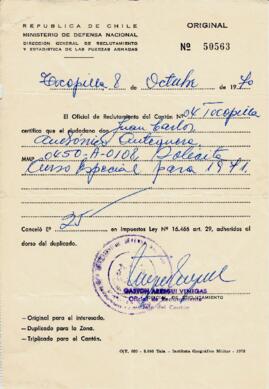 REPUBLICA DE CHILE
MINISTERIO DE DEFENSA NACIONAL
DIRECCION GENERAL DE RECLUTAMIENTO
Y ESTADISTICA DE LAS FUERZAS ARMADAS
ORIGINAL
Nº 50563
Tocopilla 8 de Octubre de 1970
El Oficial de Reclutamiento del Cantón Nº 04 Tocopilla
certifica que el ciudadano don Juan Carlos
Antequera
MMP 0450-A-0108. Solicita
Curso Especial para 1971.
Canceló Eº 25 en impuestos Ley Nº 16.466 art. 29, adheridos al
dorso del duplicado.
GASTON VENEGAS
Oficial de Reclutamiento
DE RECLUTAMIENTO
del Cantón
—Original para el interesado.
—Duplicado para la Zona.
—Triplicado para el Cantón.
Instituto Geográfico Militar